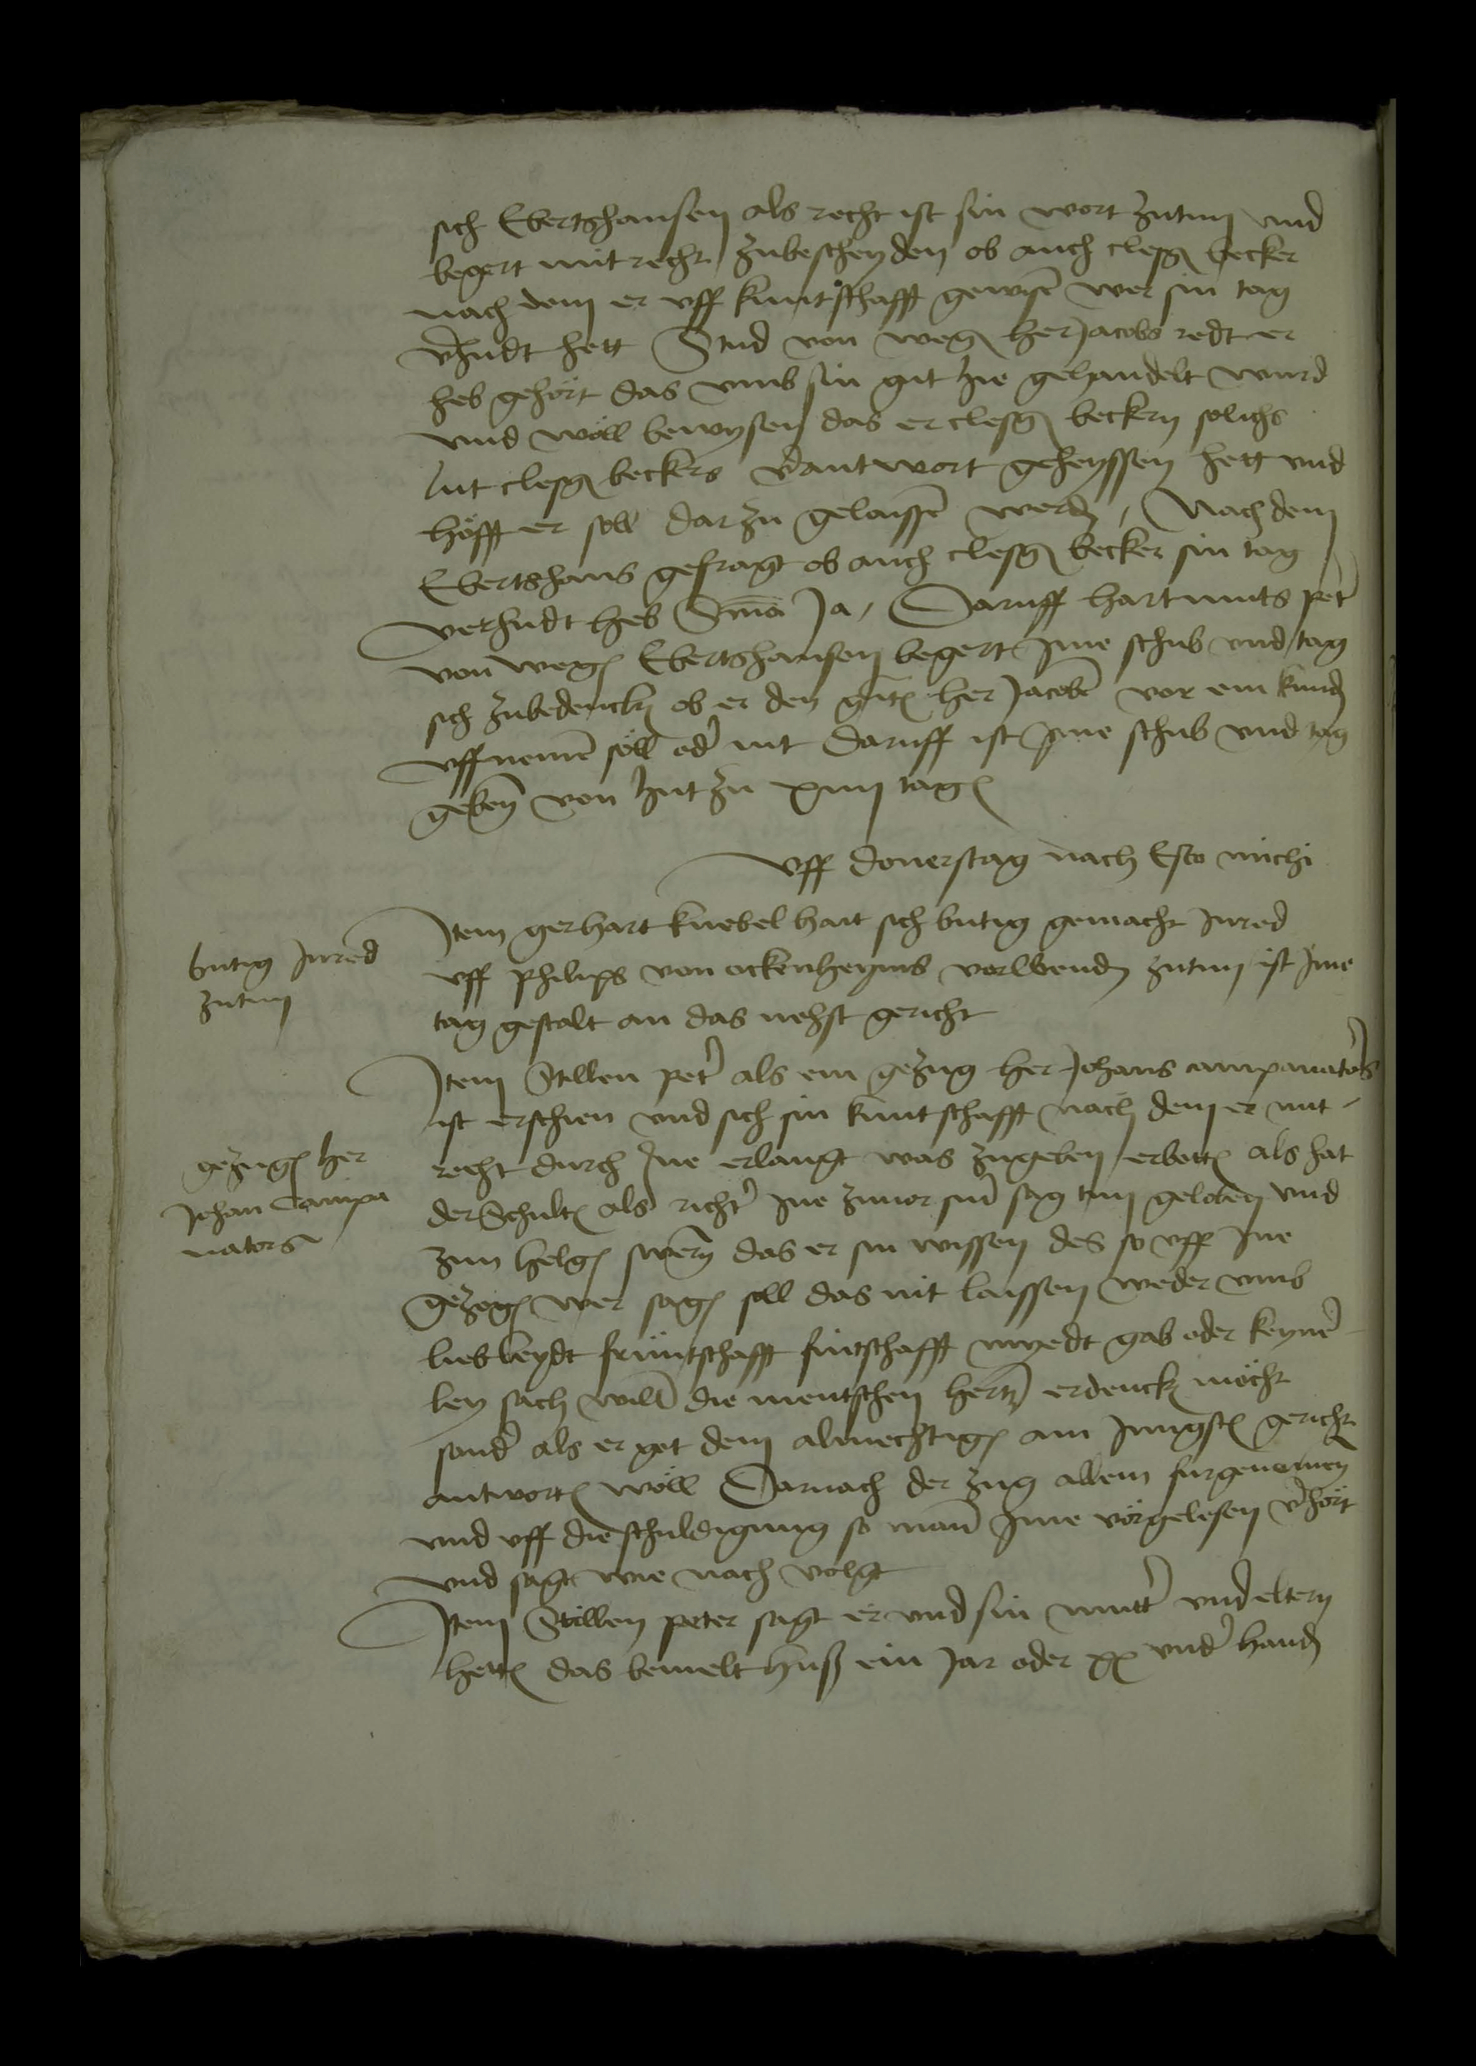 sich Ebertshansen als recht ist sin wort zutun und
begert mit recht zubescheyden ob auch clesgin becker
nach dem er uff kuntschafft gewist wer sin tag
v'hudt hett Stud von wegen her Jacobs redt er
heb gehört das umb sin gut hie gehandelt wurd
und wöll bewysen das er clesgin beckern solichs
lut clesgin beckers v'antwort geheyssen hett und
höfft er soll dar zu gelaissen werden / Nach dem
Ebertshans gefragt ob auch clesgin becker sin tag
verhudt heb S'ma Ja / Daruff hartmuts pet'
von wegen Ebertshansen begert Ime schub und tag
sich zubedencken ob er den guten her Jacoben vor ein kunden
uffnemen söll od' nit Daruff ist Ime schub und tag
geben von hut zu xiiii tagen
Uff donerstag nach Esto michi
butig Inred
zutun
Item gerhart knebel hait sich butig gemacht Inred
uff Philips von ockenheyms vorwenden zutun ist Ime
tag gestalt an das nehst gericht
gezugen her
Johan Campa
nators
Item Stillen pet' als ein gezug her Johans campanators
ist erschien und sich sin kuntschafft nach dem er mit
recht durch Ine erlangt was zugeben erbotten als hat
der Schultes als richt' Ine zuvor sin' sag tun geloben und
zun helgen swern das er sin wissen des so uff Ine
gezogen wer sagen soll das nit laissen weder umb
lieb leydt früntschafft fintschafft myedt gab oder keyner
ley sach willen die mentschen hertz erdencken möcht
sond' als er got dem almechtigen am Jungsten gericht
antworten wöll Darnach der zug allein furgenomen
und uff die schuldigung so man Ime vörgelesen v'hört
und sagt wie nach volgt
Item Stillen peter sagt er und sin mutt' und eltern
hetten das bemelt huß ein Jar oder xx und' handen